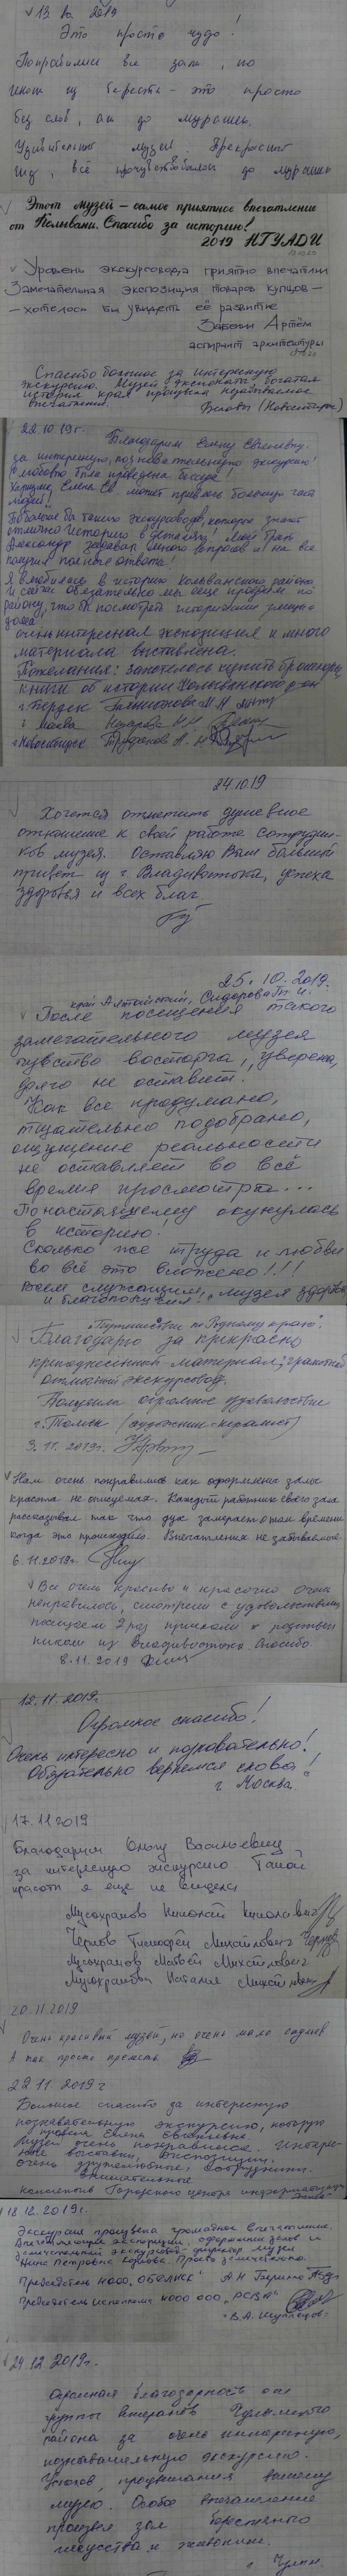 13 2019
Это просто чудо!
Понравились все залы, но
из бересты - это просто
без слов, аж до мурашек.
Удивительный музей. Прекрасный
всё прочувствовалось до мурашек
Этот музей – самое приятное впечатление
от Колывани. Спасибо за историю!
2019 НГУАДИ
Уровень экскурсовода приятно впечатлил
Замечательная экспозиция товаров купцов –
– хотелось бы увидеть её развитие
Забелин Артём
аспирант архитектуры
Спасибо большое за интересную
экскурсию. Музей, экспонаты, богатая
история края произвели незабываемое
впечатление.
(Новосибирск)
22.10.19г.
Благодарим Елену Евгеньевну
за интересную, познавательную экскурсию!
С любовью была проведена беседа!
Елена Ев. может привлечь большую часть
людей!
Побольше бы таких экскурсоводов, которые знают
отлично историю в деталях! Мой брат
Александр задавал много вопросов и на все
получил полные ответы!
Я влюбилась в историю Колыванского района
и сейчас обязательно мы ещё проедем по
району, чтобы посмотреть исторические улицы и
дома!
очень интересная экспозиция и много
материала выставлена.
Пожелания: захотелось купить брошюры,
книги об истории Колыванского р-он
г. Бердск
г. Москва
г. Новосибирск
24.10.19
Хочется отметить душевное
отношение к своей работе сотрудни-
ков музея. Оставляю Вам большой
привет из г. Владивостока, успеха
здоровья и всех благ.
25.10.2019.
край Алтайский, Сидорова
После посещения такого
замечательного музея
чувство восторга, уверена,
долго не оставит!
Как все продумано,
тщательно подобрано,
ощущение реальности
не оставляет во всё
время просмотра...
По настоящему окунулась
в историю!
Сколько же труда и любви
во всё это вложено!!!
Всем служащим музея здоровья
и благополучия!
"Путешествие по Родному краю".
Благодарю за прекрасно
преподнесенный материал, грамотный
экскурсовод.
Получила огромное удовольствие
г. Томск (художник-керамист)
3.11.2019г.
Нам очень понравились как оформлены залы
красота не описуемая. Каждый работник своего зала
рассказывал так что дух замирает о том времени
когда это происходило. Впечатления не забываемые
6.11.2019г.
Все очень красиво и красочно очень
понравилось, смотрели с удовольствием
посещаем 2 раз приехали к родствен
никам из Владивостока. Спасибо
8.11.2019
12.11.2019г.
Огромное спасибо!
Очень интересно и познавательно!
Обязательно вернёмся снова!
г. Москва.
17.11.2019
Благодарим Ольгу Васильевну
за интересную экскурсию Такой
красоты я еще не видела
Мусохранов Николай Николаевич
Чернов Тимофей Михайлович
Мусохранов Матвей Михайлович
Мусохранова Наталья
20.11.2019
Очень красивый музей, но очень мало
А так просто прелесть.
22.11.2019 г
Большое спасибо за интересную
познавательную экскурсию, которую
провела Елена Евгеньевна.
Музей очень понравился. Интерес-
ные выставки, экспозиции.
Очень дружелюбные, сотрудники.
внимательные.
Коллектив Городского центра
18.12.2019г.
Экскурсия произвела громадное впечатление.
Впечатляющие экспозиции, оформление залов и
замечательный экскурсовод директор музея
Нина Петровна. Право замечательно.
Председатель НООО "ОБЕЛИСК" А.Н.
Председатель исполкома НООО ООО "РСВА"
В.А.
24.12.2019г.
Огромная благодарность от
группы ветеранов Чулымского
района за очень интересную,
познавательную экскурсию.
Успехов, процветания вашему
музею. Особое впечатление
произвёл зал берестяного
искусства и живописи.
г. Чулым